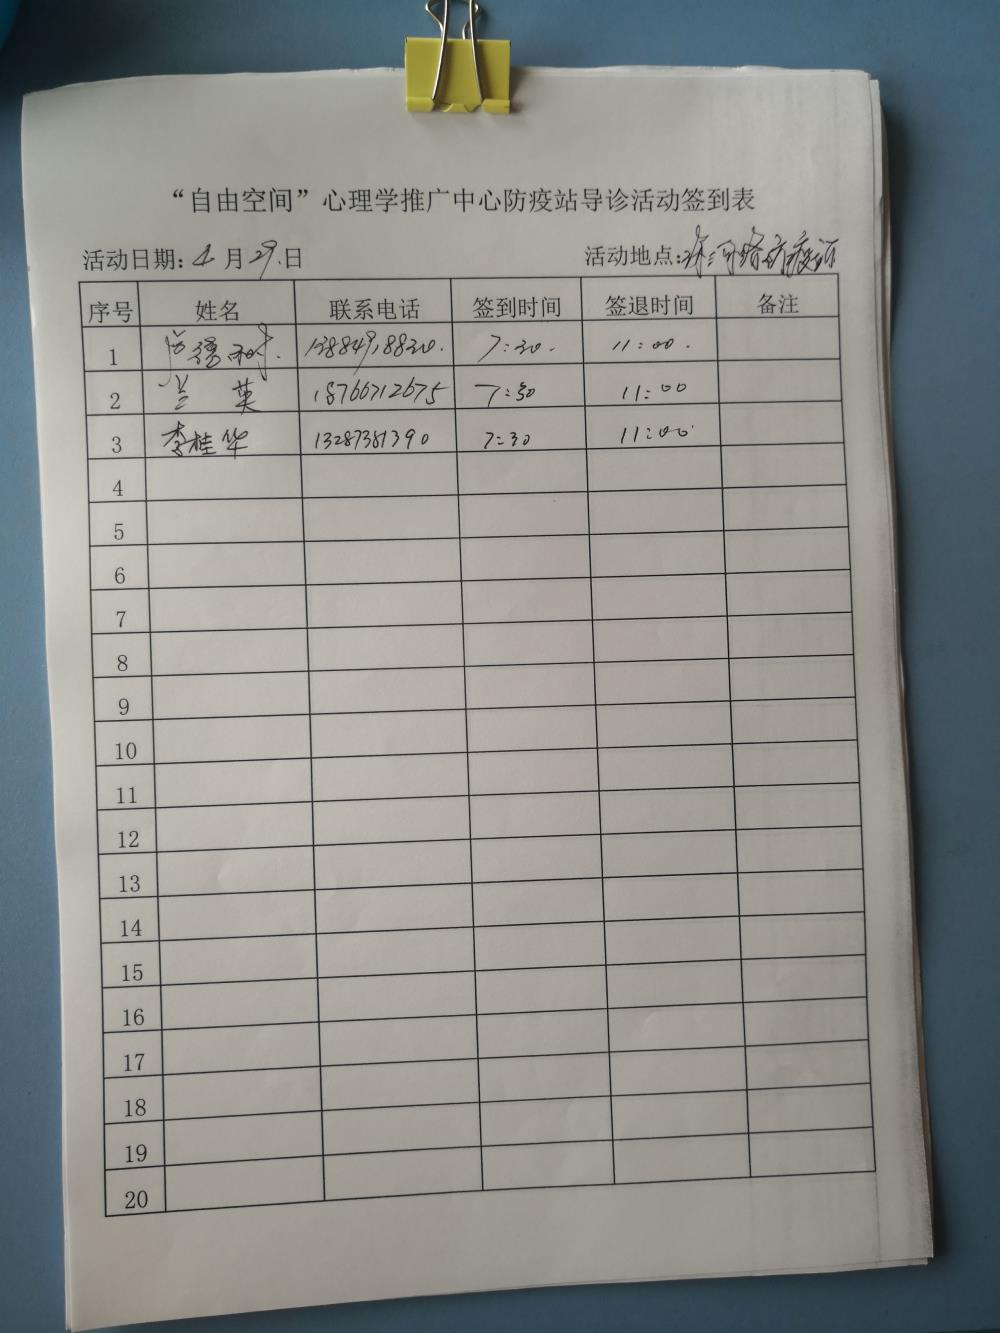 “自由空间”心理学推广中心防疫站导诊活动签到表
活动日期：4月29日 活动地点：防疫站
序号 姓名 联系电话 签到时间 签退时间 备注
1 13884918830. 7:30. 11:00.
2 兰英 18766712675 7:30 11:00
3 李桂华 13287381390 7:30 11:00
4
5
6
7
8
9
10
11
12
13
14
15
16
17
18
19
20